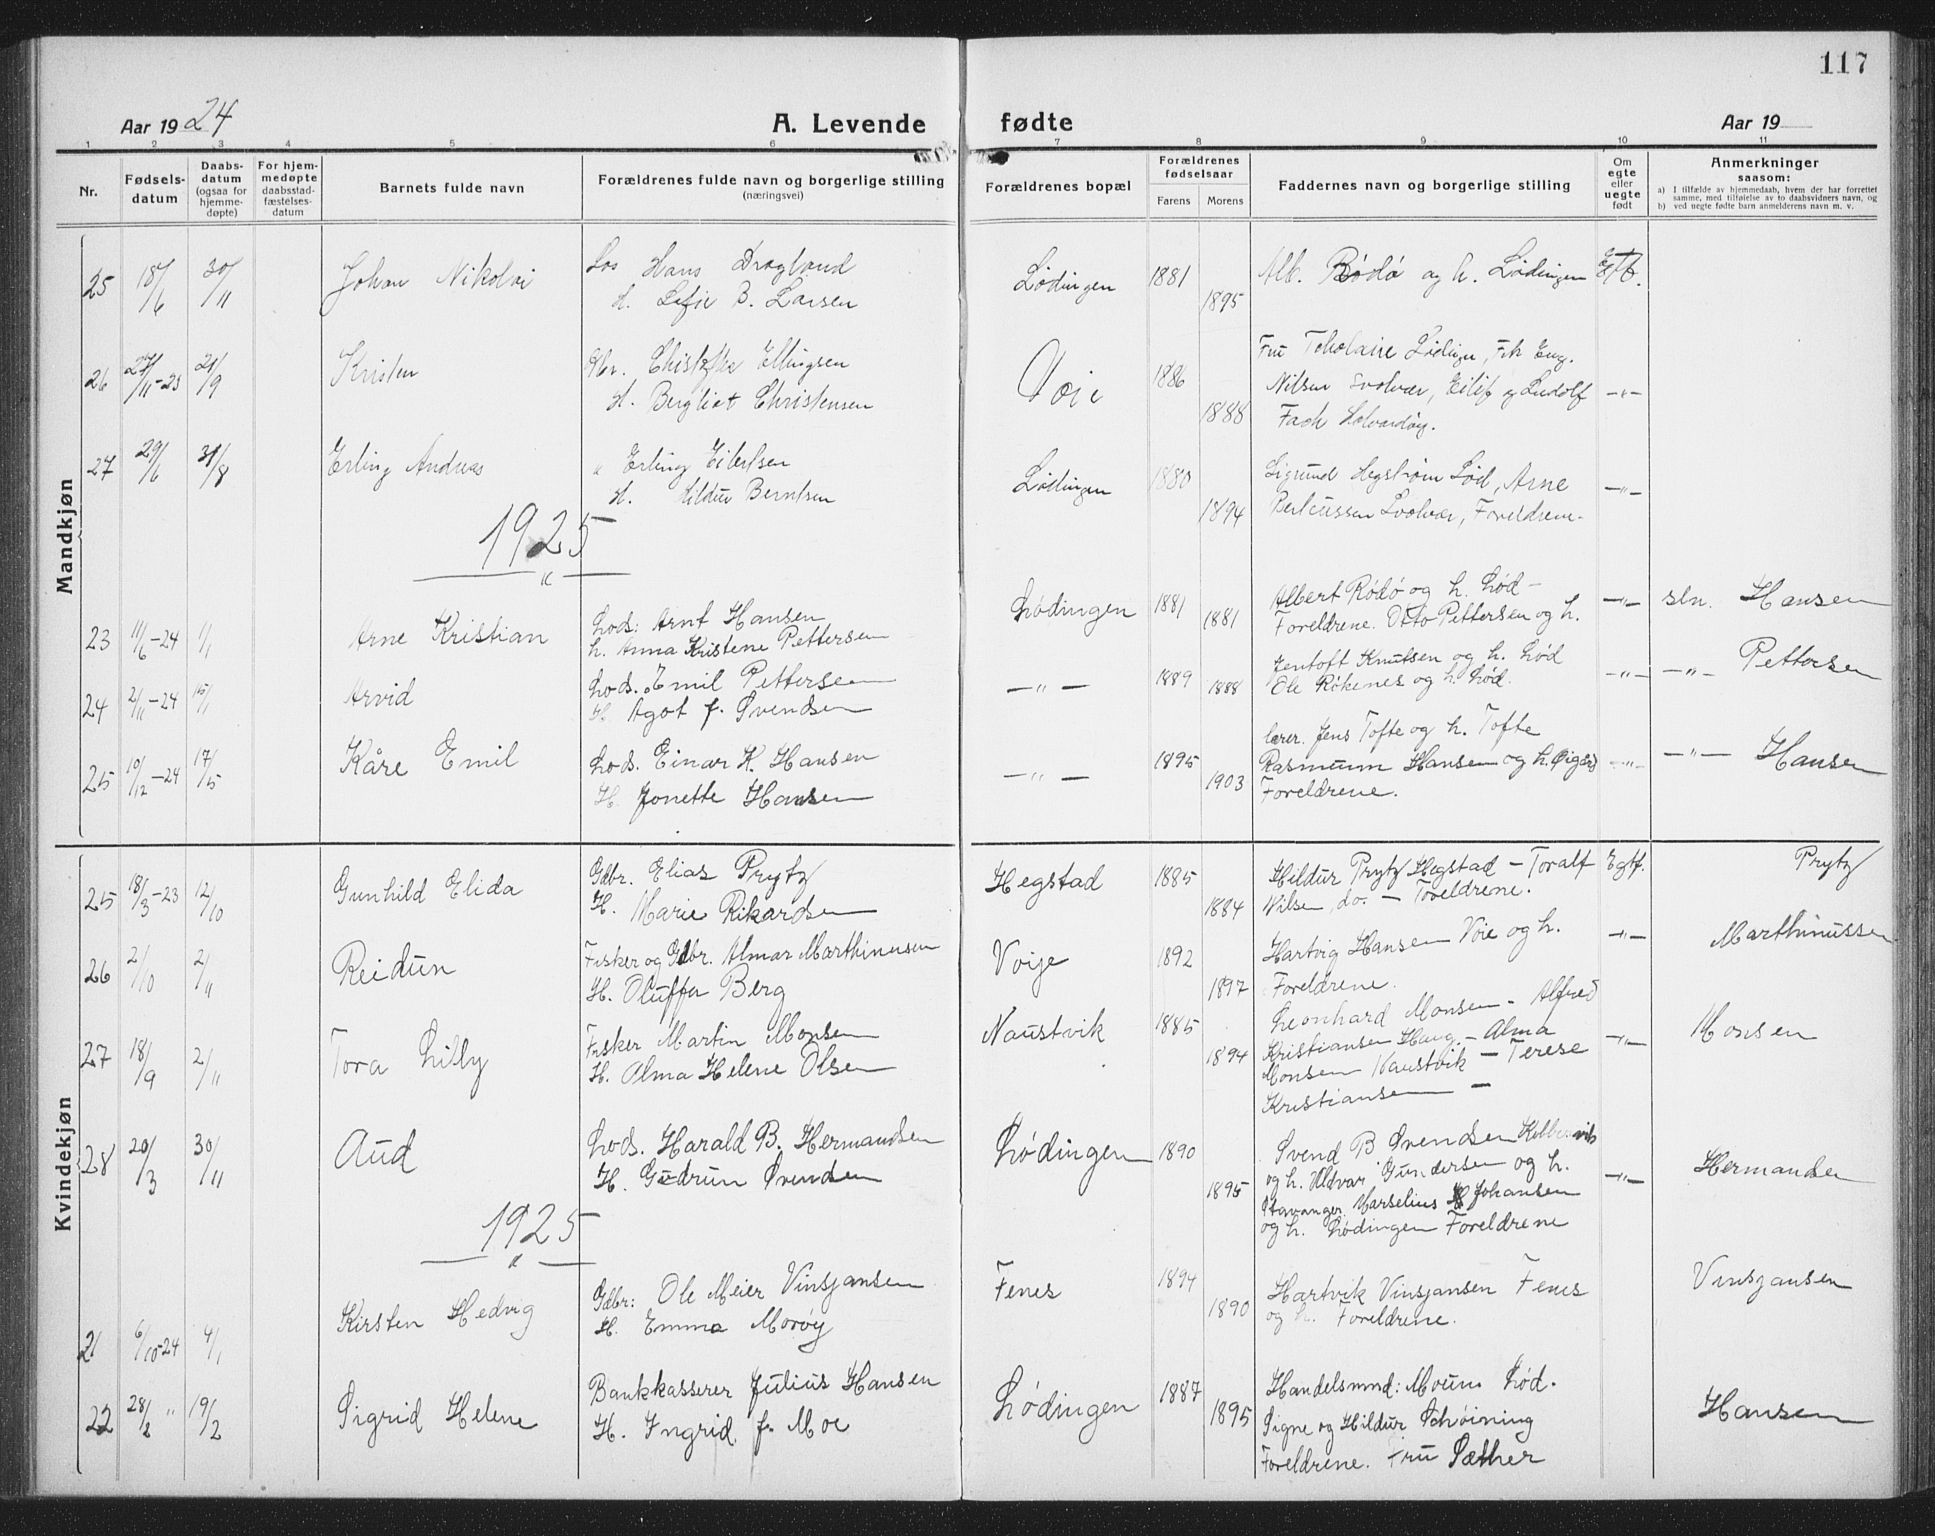 117
Aar 1924
A. Levende fødte
Aar 19
1 2 3 4 5 6 7 8 9 10 11
Nr.
Fødsels-
datum
Daabs-
datum
(ogsaa for
hjemme-
døpte)
For hjem-
medøpte
daabsstad-
fæstelses-
datum
Barnets fulde navn
Forældrenes fulde navn og borgerlige stilling
(næringsvei)
Forældrenes bopæl
Forældrenes
fødselsaar
Farens Morens
Faddernes navn og borgerlige stilling
Om
egte
eller
uegte
født
Anmerkninger
saasom:
a) I tilfælde av hjemmedaab, hvem der har forrettet
samme, med tilføielse av to daabsvidners navn, og
b) ved uegte fødte barn anmelderens navn m. v.
Mandkjøn
25 18/6 30/11 Johan Nikolai Los Hans Dragland Lødingen 1881 Alb. Rødø og h. Lødingen
H. B. Larsen 1895
26 27/11-23 21/9 Kristen Gbr. Ellingsen 1886 Fru Lødingen,
H. Bergliot Christensen 1888 Nilsen Svolvær, Eilif og Ludolf -"-
27 29/6 31/8 Erling Andreas " Erling Eilertsen Lødingen 1880 Sigrund Hegstrøm Lød, Arne -"-
H. Hildur Berntsen 1894 Svolvær, Foreldrene.
1925
"
23 11/6-24 1/1 Arne Kristian Lods: Arnt Hansen Lødingen 1881 Albert Rødø og h. Lød- -"- sln. Hansen
h. Anna Kristene Pettersen 1881 Foreldrene. Otto Pettersen og h.
24 2/11-24 15/1 Arvid Lods. Emil Pettersen -"- 1889 Jentoft Knutsen og h. Lød -"- -"- Pettersen
H. Agot f. Svendsen 1888 Ole Rökenes og h. Lød.
25 10/12-24 17/5 Kåre Emil Lods. Einar K. Hansen -"- 1895 lærer. Jens Tofte og h. Tofte -"- -"- Hansen
H. Jonette Hansen 1903 Rasmum Hansen og h.
Foreldrene.
Kvindekjøn
25 18/3-23 12/10 Gunhild Elida Gdbr. Elias Prytz Hegstad 1885 Hildur Prytz Hegstad - Toralf Egtf. Prytz
H. Marie Rikardsen 1884 Nilsen do. - Foreldrene.
26 2/10 2/11 Reidun Fisker og Gdbr. Almar Marthinusen Voije 1892 Hartvig Hansen Voie og h. -"- Marthinussen
H. Oluffa Berg 1897 Foreldrene.
27 18/9 2/11 Tora Lilly Fisker Martin Monsen Naustvik 1885 Leonhard Monsen - Alfred -"- Monsen
H. Alma Helene Olsen 1894 Kristiansen Haug. - Alma
Monsen Naustvik - Terese
Kristiansen -
28 20/3 30/11 Aud Lods. Harald B. Hermandsen Lødingen 1890 Svend B Svendsen -"- Hermandsen
H. Gudrun Svendsen 1895 og h. Gundersen og h.
Stavanger. Marselius Johansen
og h. Lødingen Foreldrene
1925
"
21 6/10-24 4/1 Kirsten Hedvig Gdbr: Ole Meier Vinsjansen Fenes 1894 Hartvik Vinsjansen Fenes Vinsjansen
H. Emma Morøy 1890 og h. Foreldrene.
22 28/2 " 19/2 Sigrid Helene Bankkasserer Julius Hansen Lødingen 1887 Handelsmnd: Moum Lød. Hansen
H. Ingrid f. Moe 1895 Signe og Hildur Schøining
Foreldrene. Fru Sæther